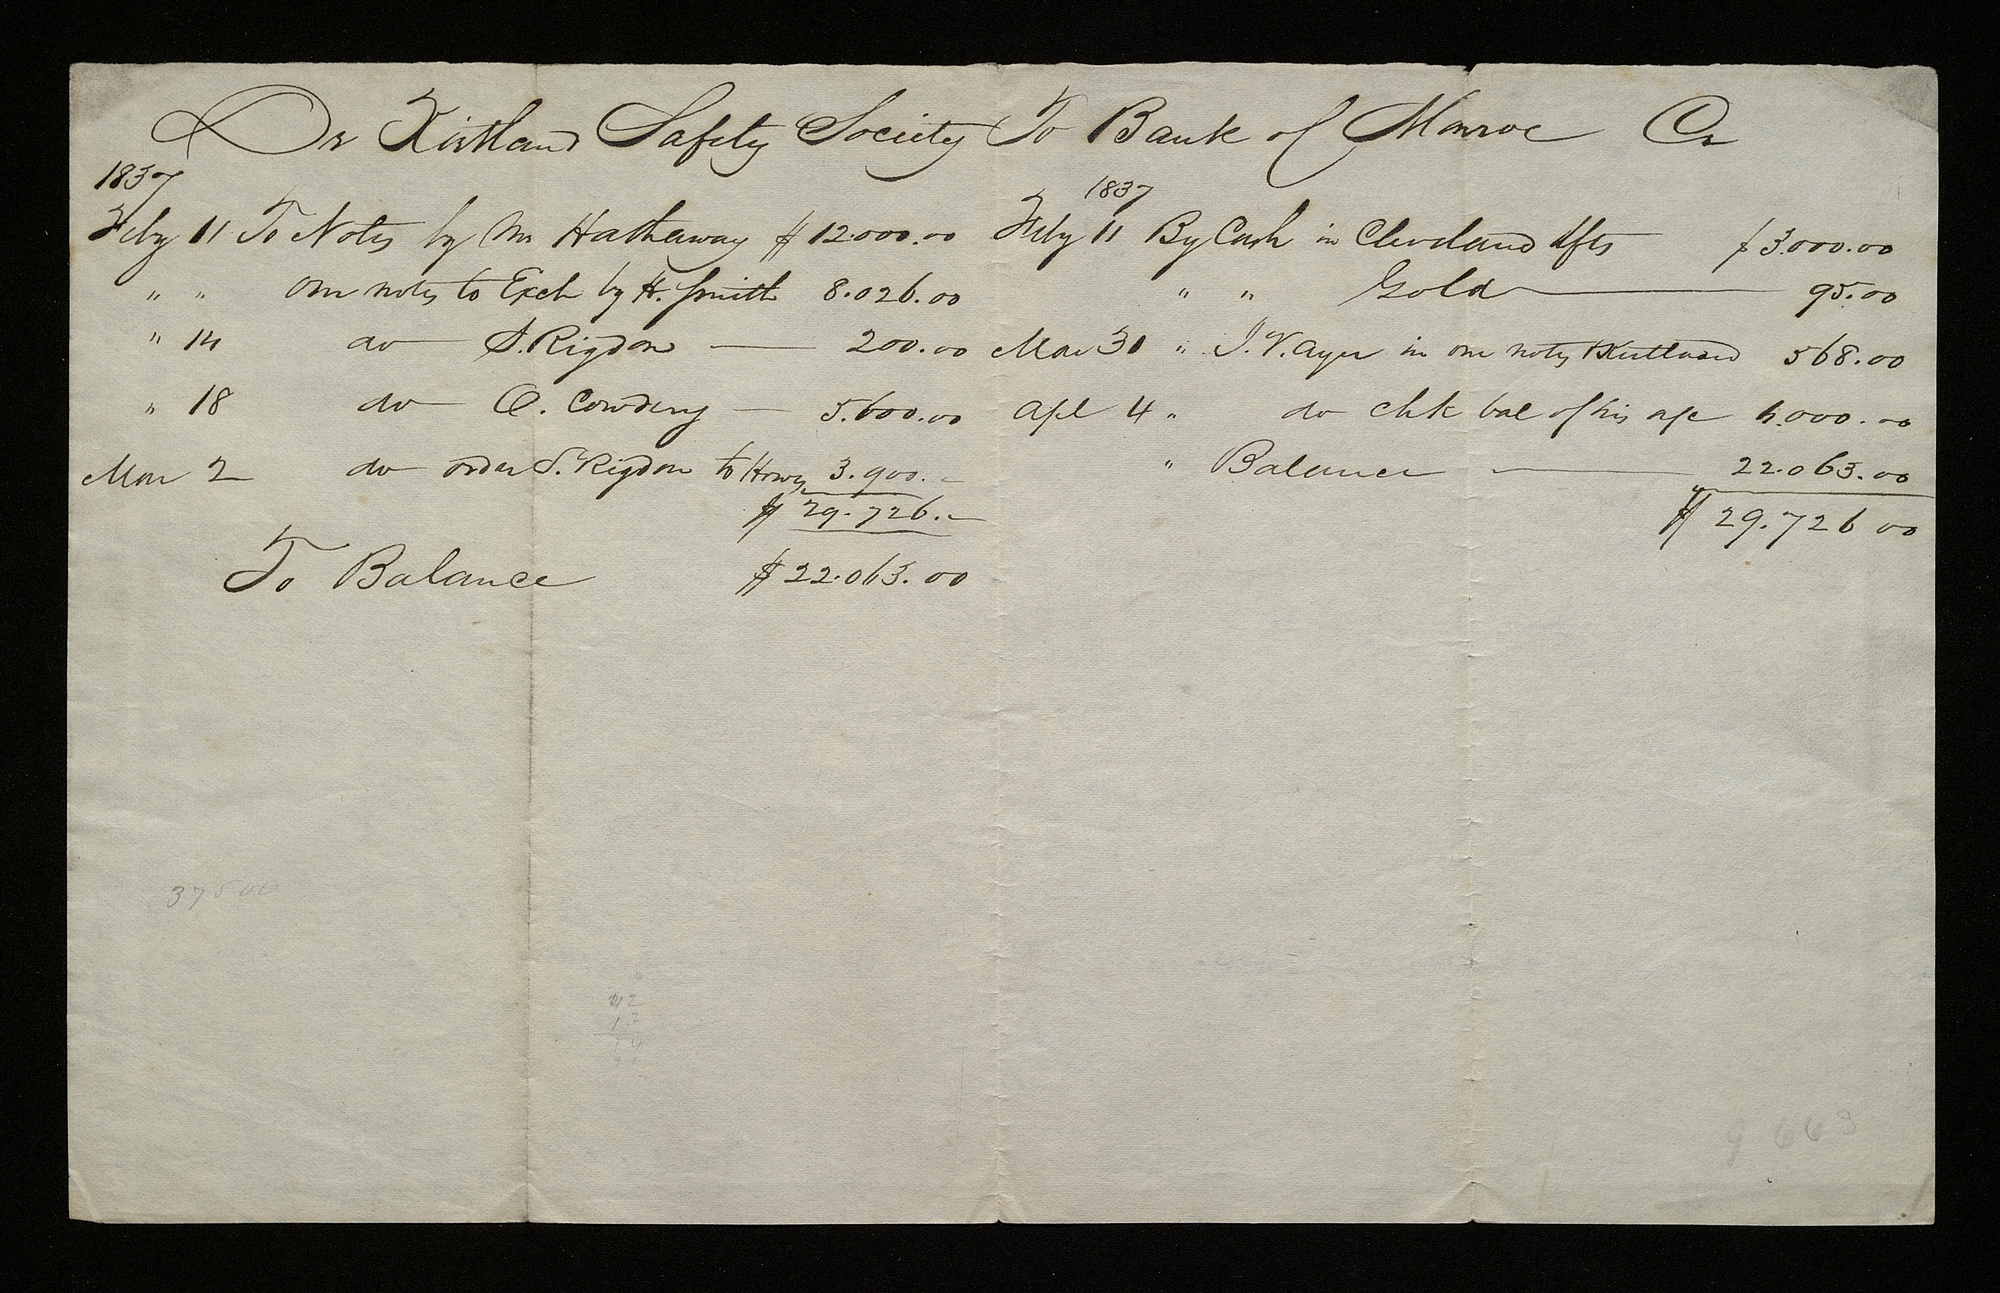 Dr Kirtland Safety Society To Bank of Monroe Cr
1837
Feby 11 To Notes by Mr Hathaway $12.000.00
" " our notes to Exch by H. Smith 8.026.00
" 14 do S. Rigdon 200.00
" 18 do O. Cowdery 5.600.00
Mar 2 do order S. Rigdon to 3.900.-
$ 29.726.-
To Balance $22.063.00
1837
Feby 11 By Cash in Cleveland dfts $3.000.00
" " Gold 95.00
Mar 31 " J. V. Ayer in our notes Kirtland 568.00
Apl 4 " do chk bal of his a/c 4.000.00
" Balance 22.063.00
$ 29.726 00
37500
9 663